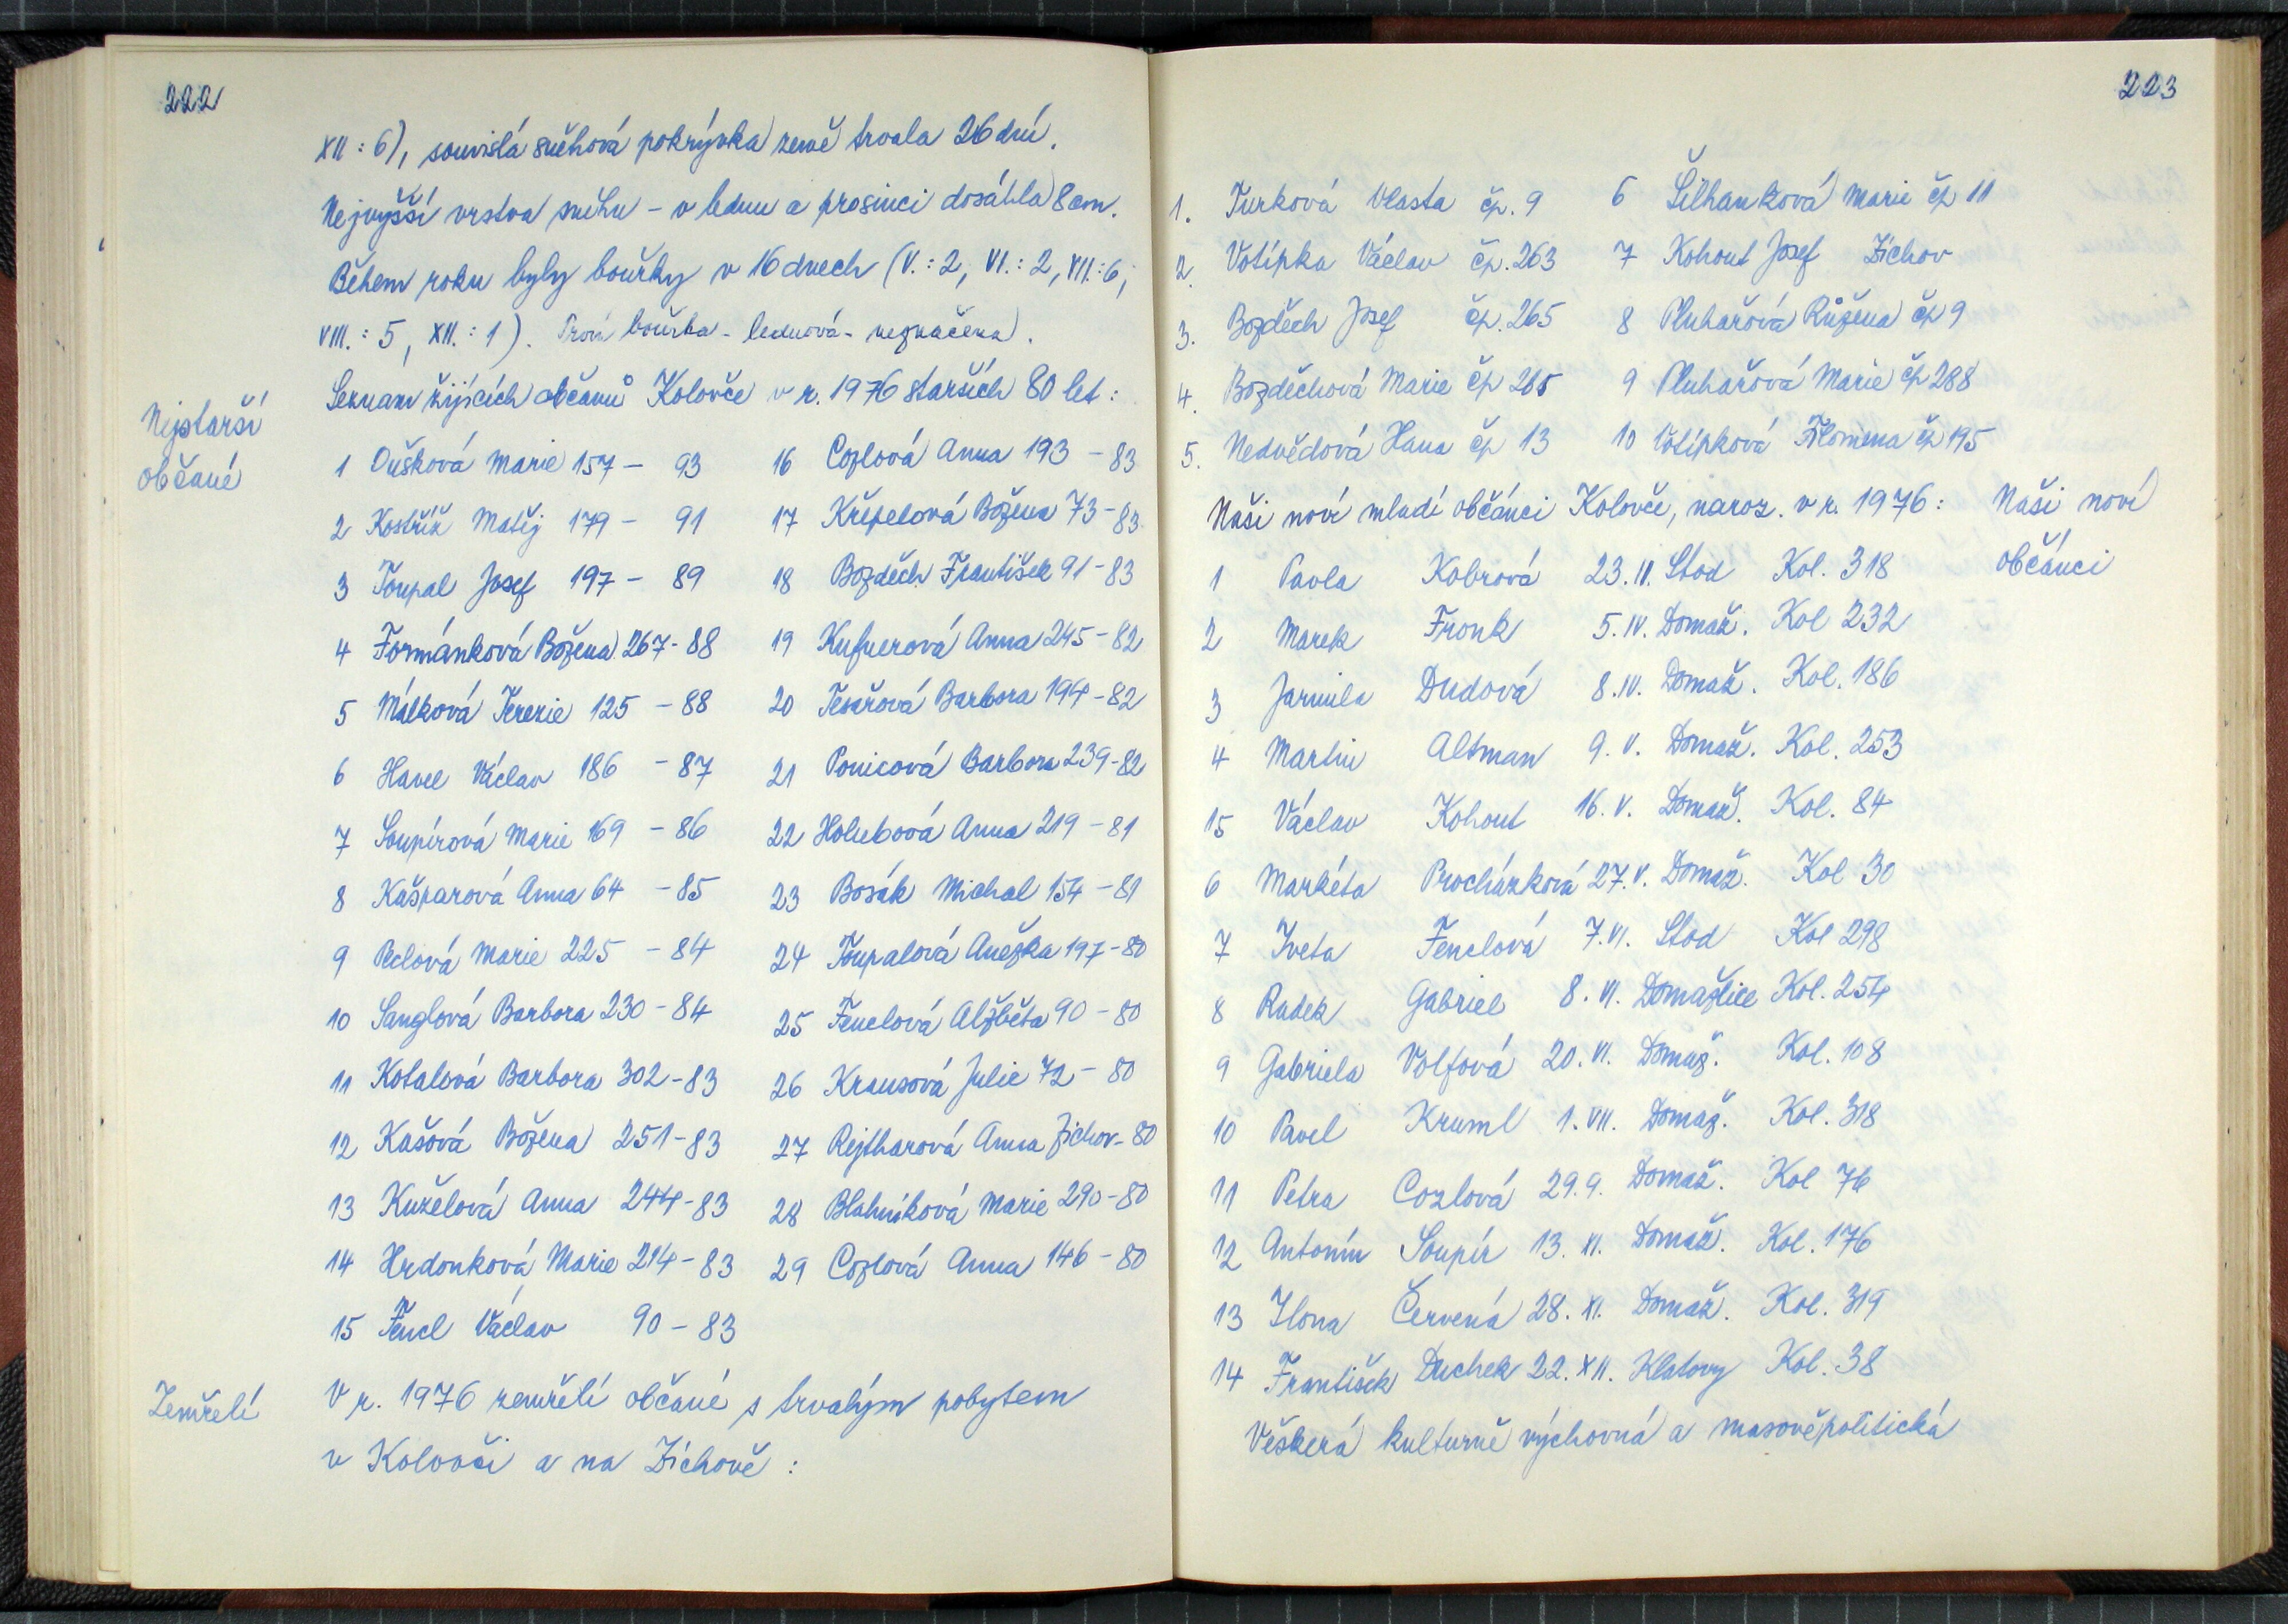 222
XII : 6), souvislá sněhová pokrývka země trvala 26 dní.
Nejvyšší vrstva sněhu - v lednu a prosinci dosáhla 8 cm.
Během roku byly bouřky v 16 dnech (V. : 2, VI. : 2, VII. : 6,
VIII. : 5, XII. : 1). První bouřka - lednová - neznačena.
Nejstarší
občané
Seznam žijících občanů Kolovče v r. 1976 starších 80 let :
1 Dušková Marie 157 - 93
2 Kostříž Matěj 179 - 91
3 Toupal Josef 197 - 89
4 Formánková Božena 267 - 88
5 Málková Terezie 125 - 88
6 Havel Václav 186 - 87
7 Soupírová Marie 169 - 86
8 Kašparová Anna 64 - 85
9 Pelová Marie 225 - 84
10 Sanglová Barbora 230 - 84
11 Kotalová Barbora 302 - 83
12 Kašová Božena 251 - 83
13 Kuželová Anna 244 - 83
14 Hrdonková Marie 214 - 83
15 Fencl Václav 90 - 83
16 Cozlová Anna 193 - 83
17 Křepelová Božena 73 - 83
18 Bozděch František 91 - 83
19 Kufnerová Anna 245 - 82
20 Tesařová Barbora 194 - 82
21 Ponicová Barbora 239 - 82
22 Holubová Anna 219 - 81
23 Bosák Michal 154 - 81
24 Toupalová Anežka 197 - 80
25 Fenclová Alžběta 90 - 80
26 Krausová Julie 72 - 80
27 Rejtharová Anna Zichov - 80
28 Blahníková Marie 290 - 80
29 Cozlová Anna 146 - 80
Zemřelí
V r. 1976 zemřeli občané s trvalým pobytem
v Kolovči a na Zíchově :
223
1. Turková Vlasta čp. 9
2. Votípka Václav čp. 263
3. Bozděch Josef čp. 265
4. Bozděchová Marie čp 265
5. Nedvědová Hana čp 13
6 Šilhanková Marie čp 11
7 Kohout Josef Zíchov
8 Pluhařová Růžena čp 9
9 Pluhařová Marie čp 288
10 Votípková Filomena čp 195
Naši noví mladí občánci Kolovče, naroz. v r. 1976 :
Naši noví
občánci
1 Pavla Kobrová 23. II. Stod Kol. 318
2 Marek Fronk 5. IV. Domaž. Kol 232
3 Jarmila Dudová 8. IV. Domaž. Kol. 186
4 Martin Altman 9. V. Domaž. Kol. 253
15 Václav Kohout 16. V. Domaž. Kol. 84
6 Markéta Procházková 27. V. Domaž. Kol 30
7 Iveta Fenclová 7. VI. Stod Kol 298
8 Radek Gabriel 8. VI. Domažlice Kol. 254
9 Gabriela Volfová 20. VI. Domaž. Kol. 108
10 Pavel Kruml 1. VII. Domaž. Kol. 318
11 Petra Cozlová 29. 9. Domaž. Kol 76
12 Antonín Soupír 13. XI. Domaž. Kol. 176
13 Ilona Červená 28. XI. Domaž. Kol. 319
14 František Duchek 22. XII. Klatovy Kol. 38
Veškerá kulturně výchovná a masověpolitická